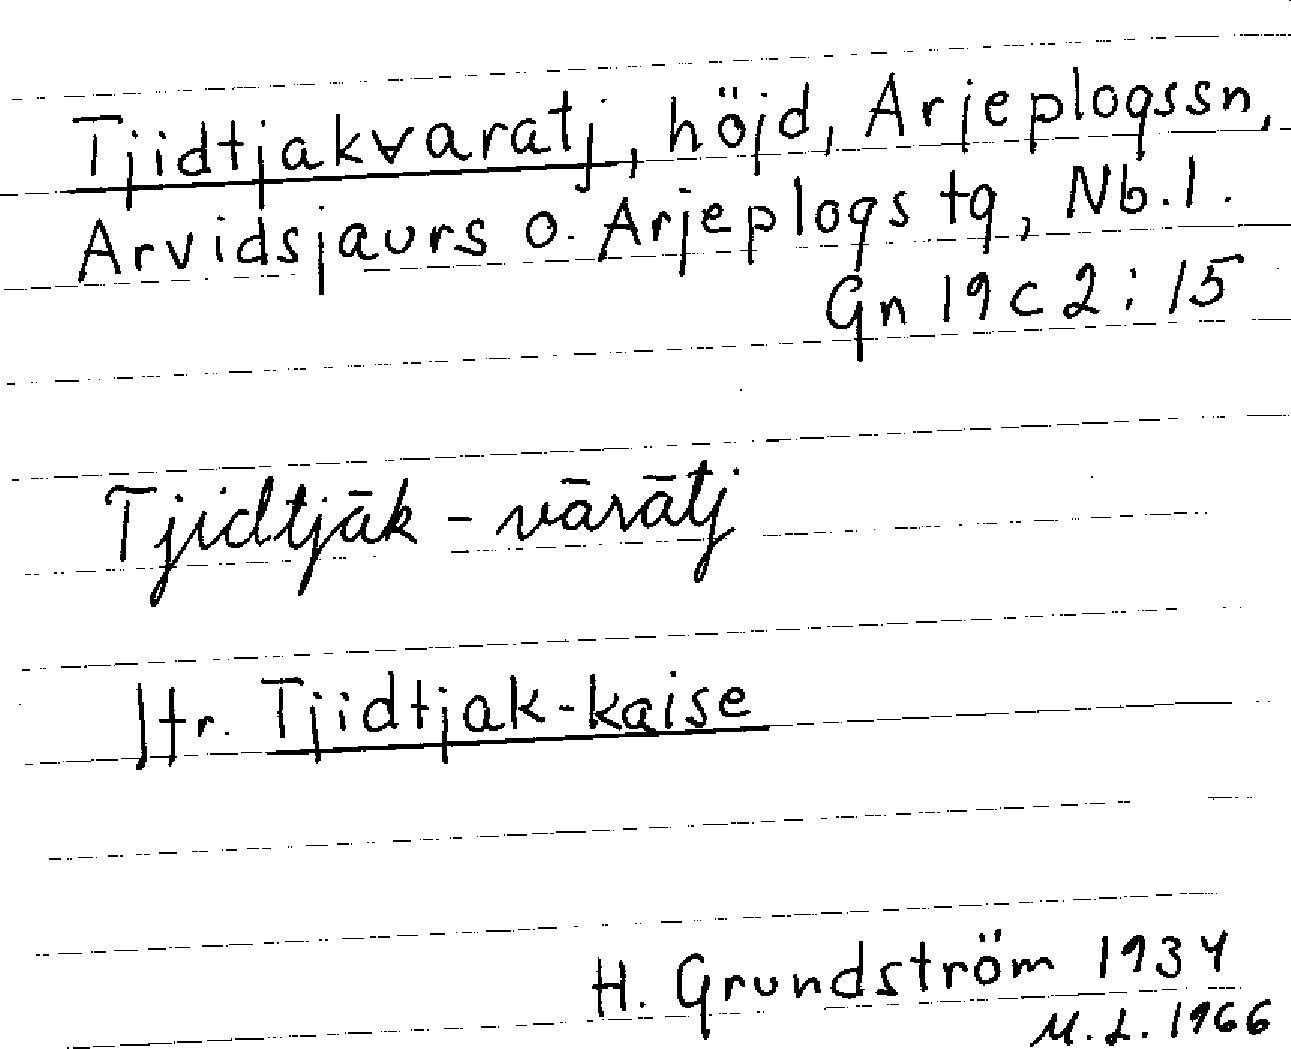 Tjidtjakvaratj, höjd, Arjeplogssn,
Arvidsjaurs o. Arjeplogs tg, Nb. l.
Gn 19 c 2 : 15
Tjidtjāk - vārātj
Jfr. Tjidtjak-kaise
H. Grundström 1934
M. L. 1966